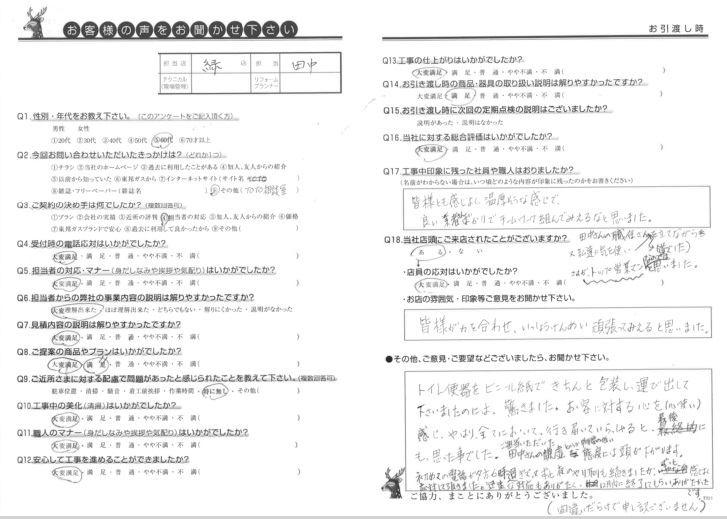 お客様の声をお聞かせ下さい
担当店 緑 店 担当 田中
テクニカル(現場管理) リフォームプランナー
Q1.性別・年代をお教え下さい。(このアンケートをご記入頂く方)
男性 女性
①20代 ②30代 ③40代 ④50代 ⑤60代 ⑥70才以上
Q2.今回お問い合わせいただいたきっかけは?(どれか1つ)
①チラシ ②当社のホームページ ③過去に利用したことがある ④知人、友人からの紹介
⑤以前から知っていた ⑥東邦ガスから ⑦インターネットサイト(サイト名
⑧雑誌・フリーペーパー(雑誌名 ) ⑨その他(
Q3.ご契約の決め手は何でしたか?(複数回答可)
①プラン ②会社の実績 ③近所の評判 ④担当者の対応 ⑤知人、友人からの紹介 ⑥価格
⑦東邦ガスブランドで安心 ⑧過去に利用して良かったから ⑨その他( )
Q4.受付時の電話応対はいかがでしたか?
大変満足・満 足・普 通・やや不満・不 満( )
Q5.担当者の対応・マナー(身だしなみや挨拶や気配り)はいかがでしたか?
大変満足・満 足・普 通・やや不満・不 満( )
Q6.担当者からの弊社の事業内容の説明は解りやすかったですか?
大変理解出来た・ほぼ理解出来た・どちらでもない・解りにくかった・説明がなかった
Q7.見積内容の説明は解りやすかったですか?
大変満足・満 足・普 通・やや不満・不 満( )
Q8.ご提案の商品やプランはいかがでしたか?
大変満足・満 足・普 通・やや不満・不 満( )
Q9.ご近所さまに対する配慮で問題があったと感じられたことを教えて下さい。(複数回答可)
駐車位置・清掃・騒音・着工前挨拶・作業時間・特に無し・その他( )
Q10.工事中の美化(清掃)はいかがでしたか?
大変満足・満 足・普 通・やや不満・不 満( )
Q11.職人のマナー(身だしなみや挨拶や気配り)はいかがでしたか?
大変満足・満 足・普 通・やや不満・不 満( )
Q12.安心して工事を進めることができましたか?
大変満足・満 足・普 通・やや不満・不 満( )
お引渡し時
Q13.工事の仕上がりはいかがでしたか?
大変満足・満 足・普 通・やや不満・不 満( )
Q14.お引き渡し時の商品・器具の取り扱い説明は解りやすかったですか?
大変満足・満 足・普 通・やや不満・不 満( )
Q15.お引き渡し時に次回の定期点検の説明はございましたか?
説明があった・説明はなかった
Q16.当社に対する総合評価はいかがでしたか?
大変満足・満 足・普 通・やや不満・不 満( )
Q17.工事中印象に残った社員や職人はおりましたか?
(名前がわからない場合は、いつ頃どのような内容が印象に残ったのかをお書きください)
皆様とも感じよく温厚な感じで、
良い でチームワーク組んでみえるなと思いました。
Q18.当社店頭にご来店されたことがございますか?
あ る・な い
・店員の応対はいかがでしたか?
・お店の雰囲気・印象等ご意見をお聞かせ下さい。
皆様が力を合わせ、いっしょうけんめい頑張ってみえると思いました。
●その他、ご意見・ご要望などございましたら、お聞かせ下さい。
トイレ便器をビニール紙できちんと包装し、運び出して
下さいましたのには、驚きました。お客に対する心を(心使い)
感じ、やはり、全てにおいて、行き届いていらっしゃると、最後
も、思った事でした。 田中さんの には頭が下がります。
ご協力、まことにありがとうございました。
(間違いだらけで申し訳ございません)